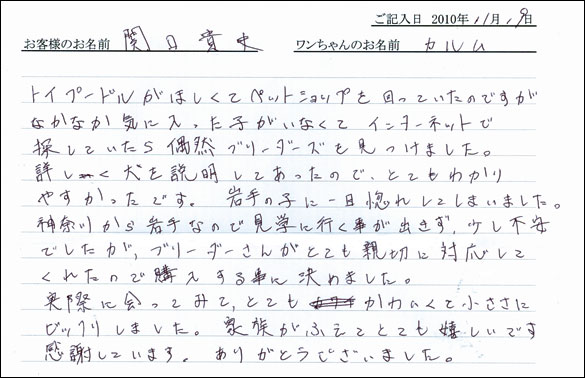 ご記入日 2010年 11月 9日
お客様のお名前 関口 貴史 ワンちゃんのお名前 カルム
トイプードルがほしくてペットショップを回っていたのですが
なかなか気に入った子がいなくてインターネットで
探していたら偶然ブリーダーズを見つけました。
詳しく犬を説明してあったので、とてもわかり
やすかったです。 岩手の子に一目惚れしてしまいました。
神奈川から岩手なので見学に行く事が出きず、少し不安
でしたが、ブリーダーさんがとても親切に対応して
くれたので購入する事に決めました。
実際に会ってみて、とても かわいくて小ささに
ビックリしました。 家族がふえてとても嬉しいです
感謝しています。 ありがとうございました。